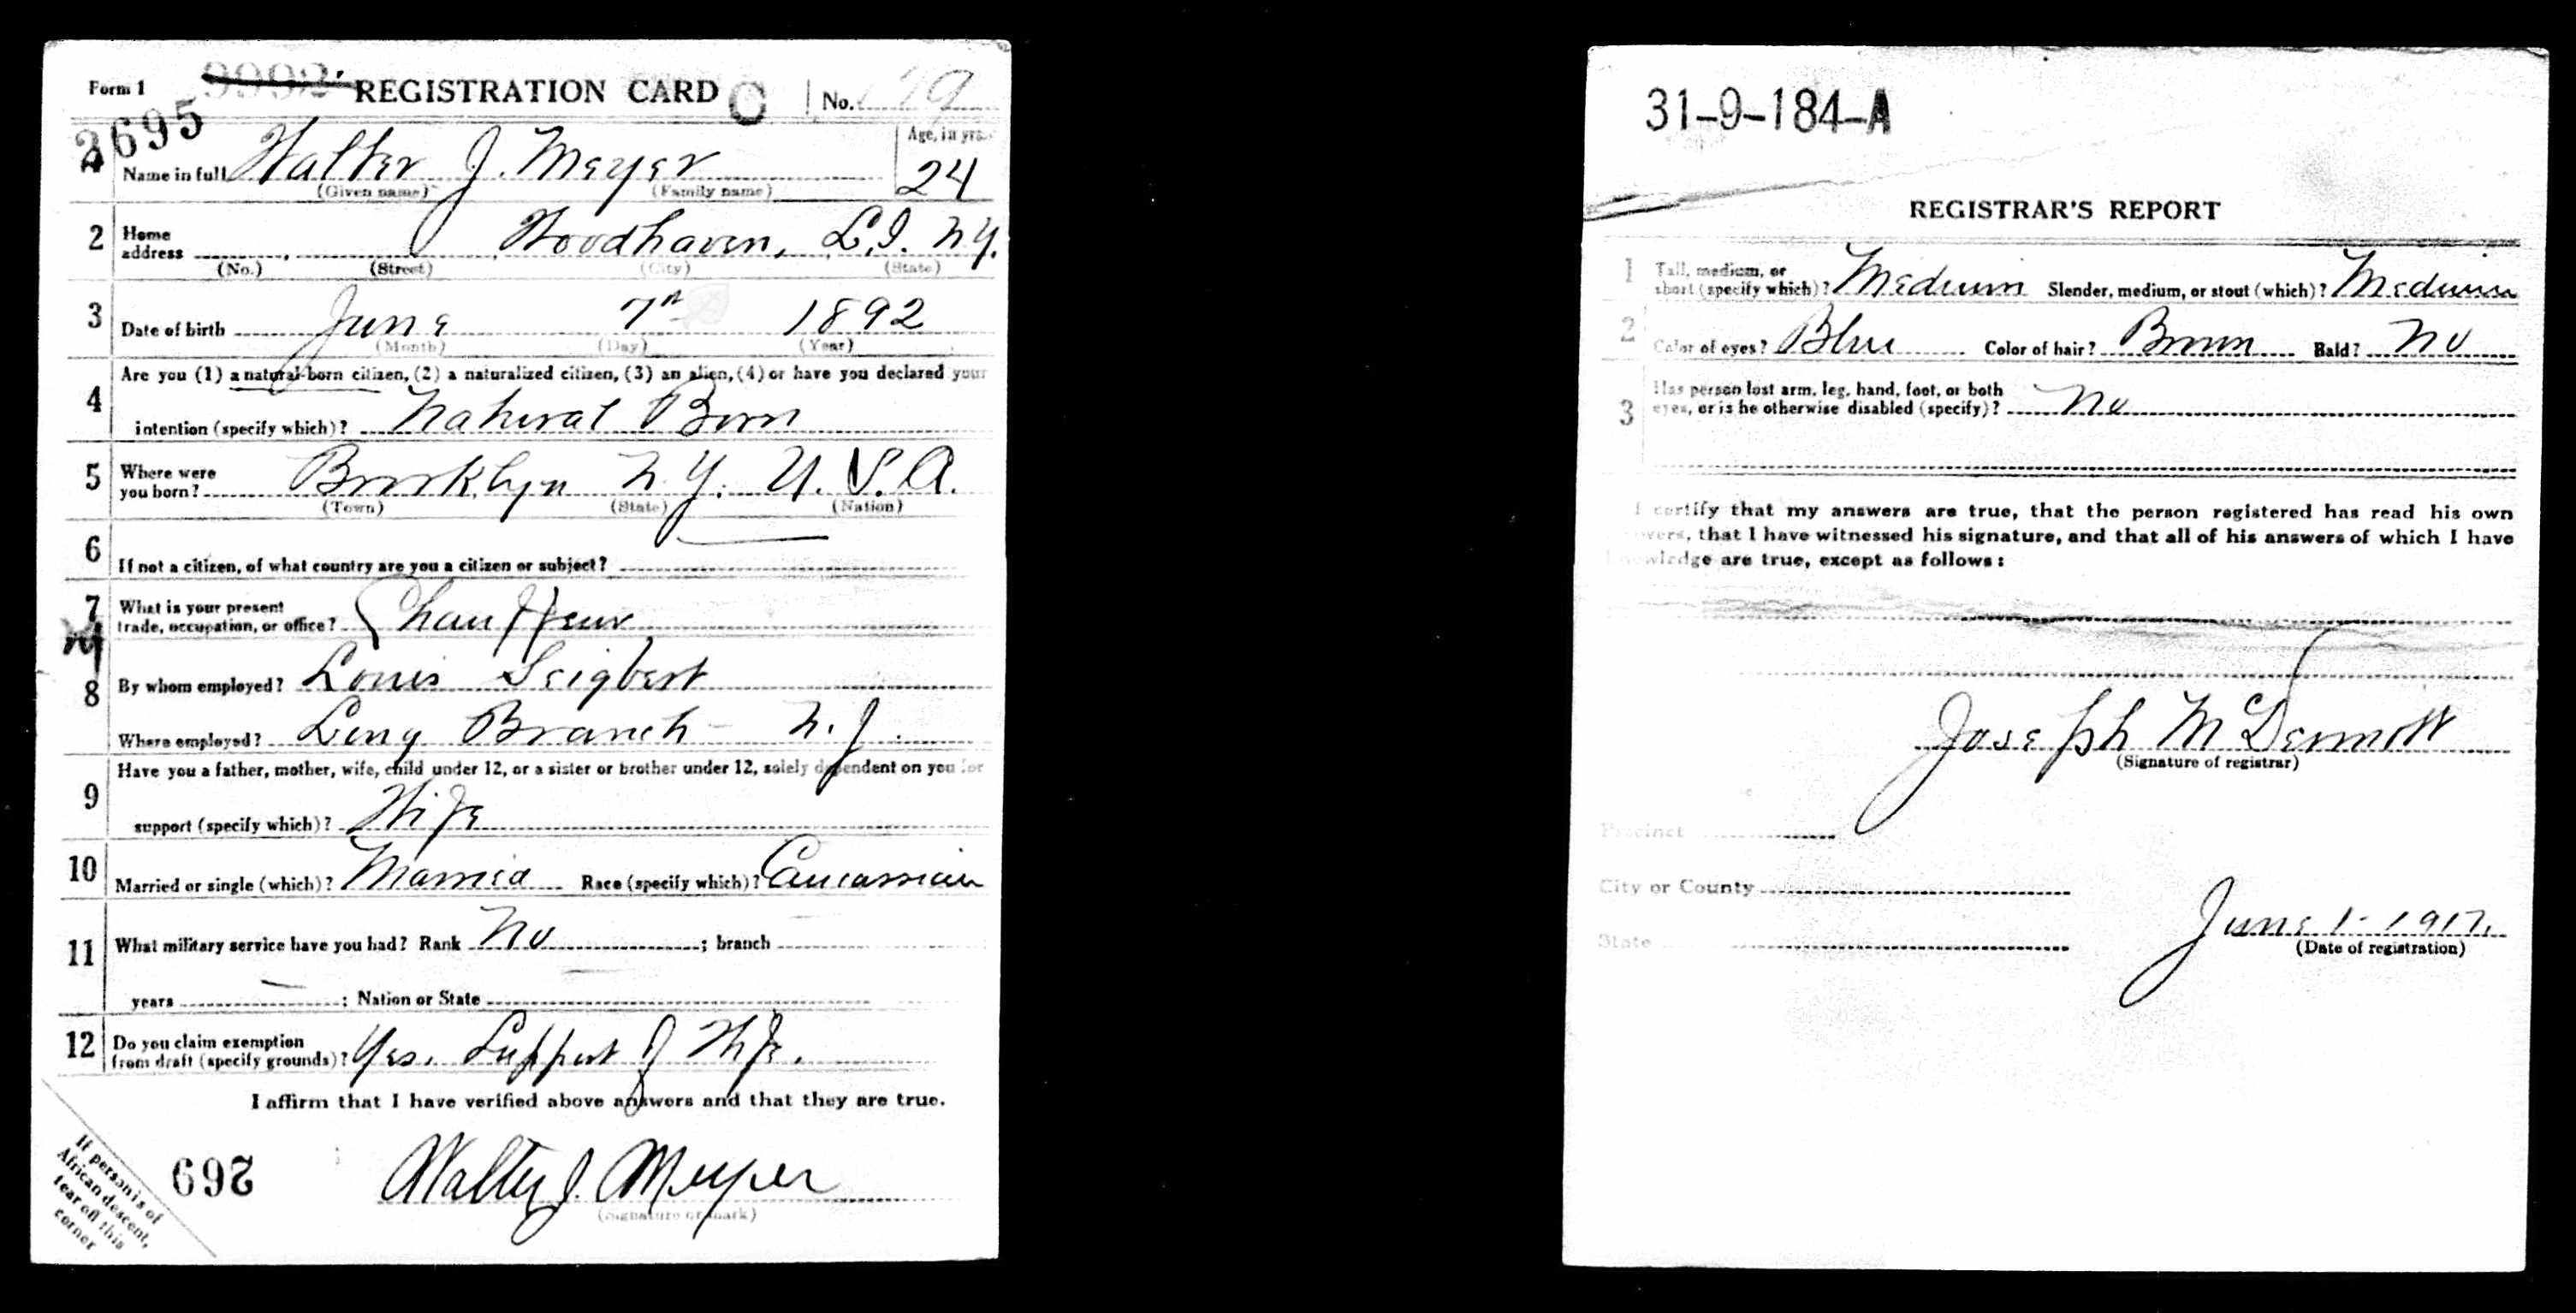 Form 1 9992 REGISTRATION CARD C No. 79
2695
Name in full Walter J. Meyer Age, in yrs. 24
(Given name) (Family name)
2 Home address Woodhaven, L.I. N.Y.
(No.) (Street) (City) (State)
3 Date of birth June 7th 1892
(Month) (Day) (Year)
4 Are you (1) a natural-born citizen, (2) a naturalized citizen, (3) an alien, (4) or have you declared your
intention (specify which)? Natural Born
5 Where were you born? Brooklyn N.Y. U.S.A.
(Town) (State) (Nation)
6 If not a citizen, of what country are you a citizen or subject?
7 What is your present trade, occupation, or office? Chauffeur
8 By whom employed? Louis Seigbert
Where employed? Long Branch - N.J.
9 Have you a father, mother, wife, child under 12, or a sister or brother under 12, solely dependent on you for
support (specify which)? Wife
10 Married or single (which)? Married Race (specify which)? Caucassian
11 What military service have you had? Rank No ; branch
years ; Nation or State
12 Do you claim exemption from draft (specify grounds)? Yes. Support of Wife.
I affirm that I have verified above answers and that they are true.
Walter J. Meyer
(Signature or mark)
If person is of
African descent,
tear off this
corner
692
31-9-184-A
REGISTRAR'S REPORT
1 Tall, medium, or short (specify which)? Medium Slender, medium, or stout (which)? Medium
2 Color of eyes? Blue Color of hair? Brown Bald? No
3 Has person lost arm, leg, hand, foot, or both
eyes, or is he otherwise disabled (specify)? No
I certify that my answers are true, that the person registered has read his own
answers, that I have witnessed his signature, and that all of his answers of which I have
knowledge are true, except as follows:
Joseph McDermott
(Signature of registrar)
Precinct
City or County
State
June 1 - 1917.
(Date of registration)